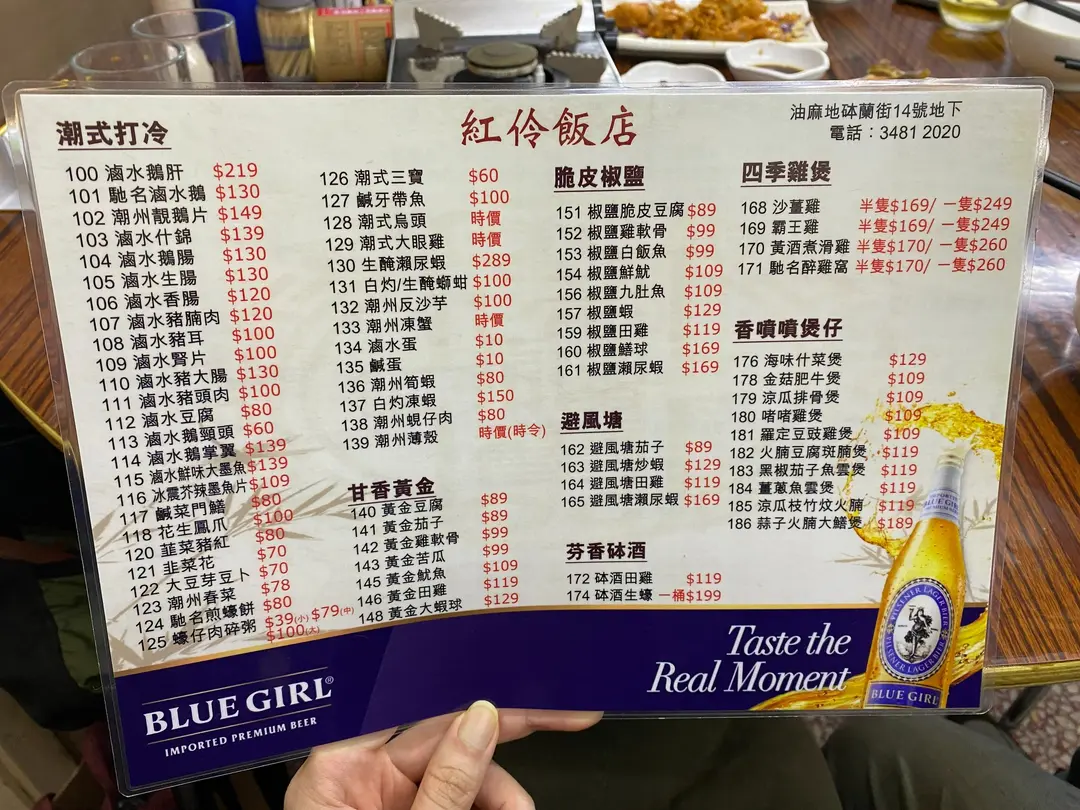 紅伶飯店
油麻地砵蘭街14號地下
電話：3481 2020
潮式打冷
100 滷水鵝肝 $219
101 馳名滷水鵝 $130
102 潮州靚鵝片 $149
103 滷水什錦 $139
104 滷水鵝腸 $130
105 滷水生腸 $130
106 滷水香腸 $120
107 滷水豬腩肉 $120
108 滷水豬耳 $100
109 滷水腎片 $100
110 滷水豬大腸 $130
111 滷水豬頭肉 $100
112 滷水豆腐 $80
113 滷水鵝頸頭 $60
114 滷水鵝掌翼 $139
115 滷水鮮味大墨魚 $139
116 冰震芥辣墨魚片 $109
117 鹹菜門鱔 $80
118 花生鳳爪 $100
120 韮菜豬紅 $80
121 韮菜花 $70
122 大豆芽豆卜 $70
123 潮州春菜 $78
124 馳名煎蠔餅 $80
125 蠔仔肉碎粥 $39(小) $79(中) $100(大)
126 潮式三寶 $60
127 鹹牙帶魚 $100
128 潮式烏頭 時價
129 潮式大眼雞 時價
130 生醃瀨尿蝦 $289
131 白灼/生醃螄蚶 $100
132 潮州反沙芋 $100
133 潮州凍蟹 時價
134 滷水蛋 $10
135 鹹蛋 $10
136 潮州筍蝦 $80
137 白灼凍蝦 $150
138 潮州蜆仔肉 $80
139 潮州薄殼 時價(時令)
甘香黃金
140 黃金豆腐 $89
141 黃金茄子 $89
142 黃金雞軟骨 $99
143 黃金苦瓜 $99
145 黃金魷魚 $109
146 黃金田雞 $119
148 黃金大蝦球 $129
脆皮椒鹽
151 椒鹽脆皮豆腐 $89
152 椒鹽雞軟骨 $99
153 椒鹽白飯魚 $99
154 椒鹽鮮魷 $109
156 椒鹽九肚魚 $109
157 椒鹽蝦 $129
159 椒鹽田雞 $119
160 椒鹽鱔球 $169
161 椒鹽瀨尿蝦 $169
避風塘
162 避風塘茄子 $89
163 避風塘炒蝦 $129
164 避風塘田雞 $119
165 避風塘瀨尿蝦 $169
芬香砵酒
172 砵酒田雞 $119
174 砵酒生蠔 一桶$199
四季雞煲
168 沙薑雞 半隻$169/ 一隻$249
169 霸王雞 半隻$169/ 一隻$249
170 黃酒煮滑雞 半隻$170/ 一隻$260
171 馳名醉雞窩 半隻$170/ 一隻$260
香噴噴煲仔
176 海味什菜煲 $129
178 金菇肥牛煲 $109
179 涼瓜排骨煲 $109
180 啫啫雞煲 $109
181 羅定豆豉雞煲 $109
182 火腩豆腐斑腩煲 $119
183 黑椒茄子魚雲煲 $119
184 薑蔥魚雲煲 $119
185 涼瓜枝竹炆火腩 $119
186 蒜子火腩大鱔煲 $189
BLUE GIRL®
IMPORTED PREMIUM BEER
Taste the
Real Moment
IMPORTED
BLUE GIRL
PREMIUM BEER
PILSENER LAGER BIER
PILSENER LAGER BIER
BLUE GIRL